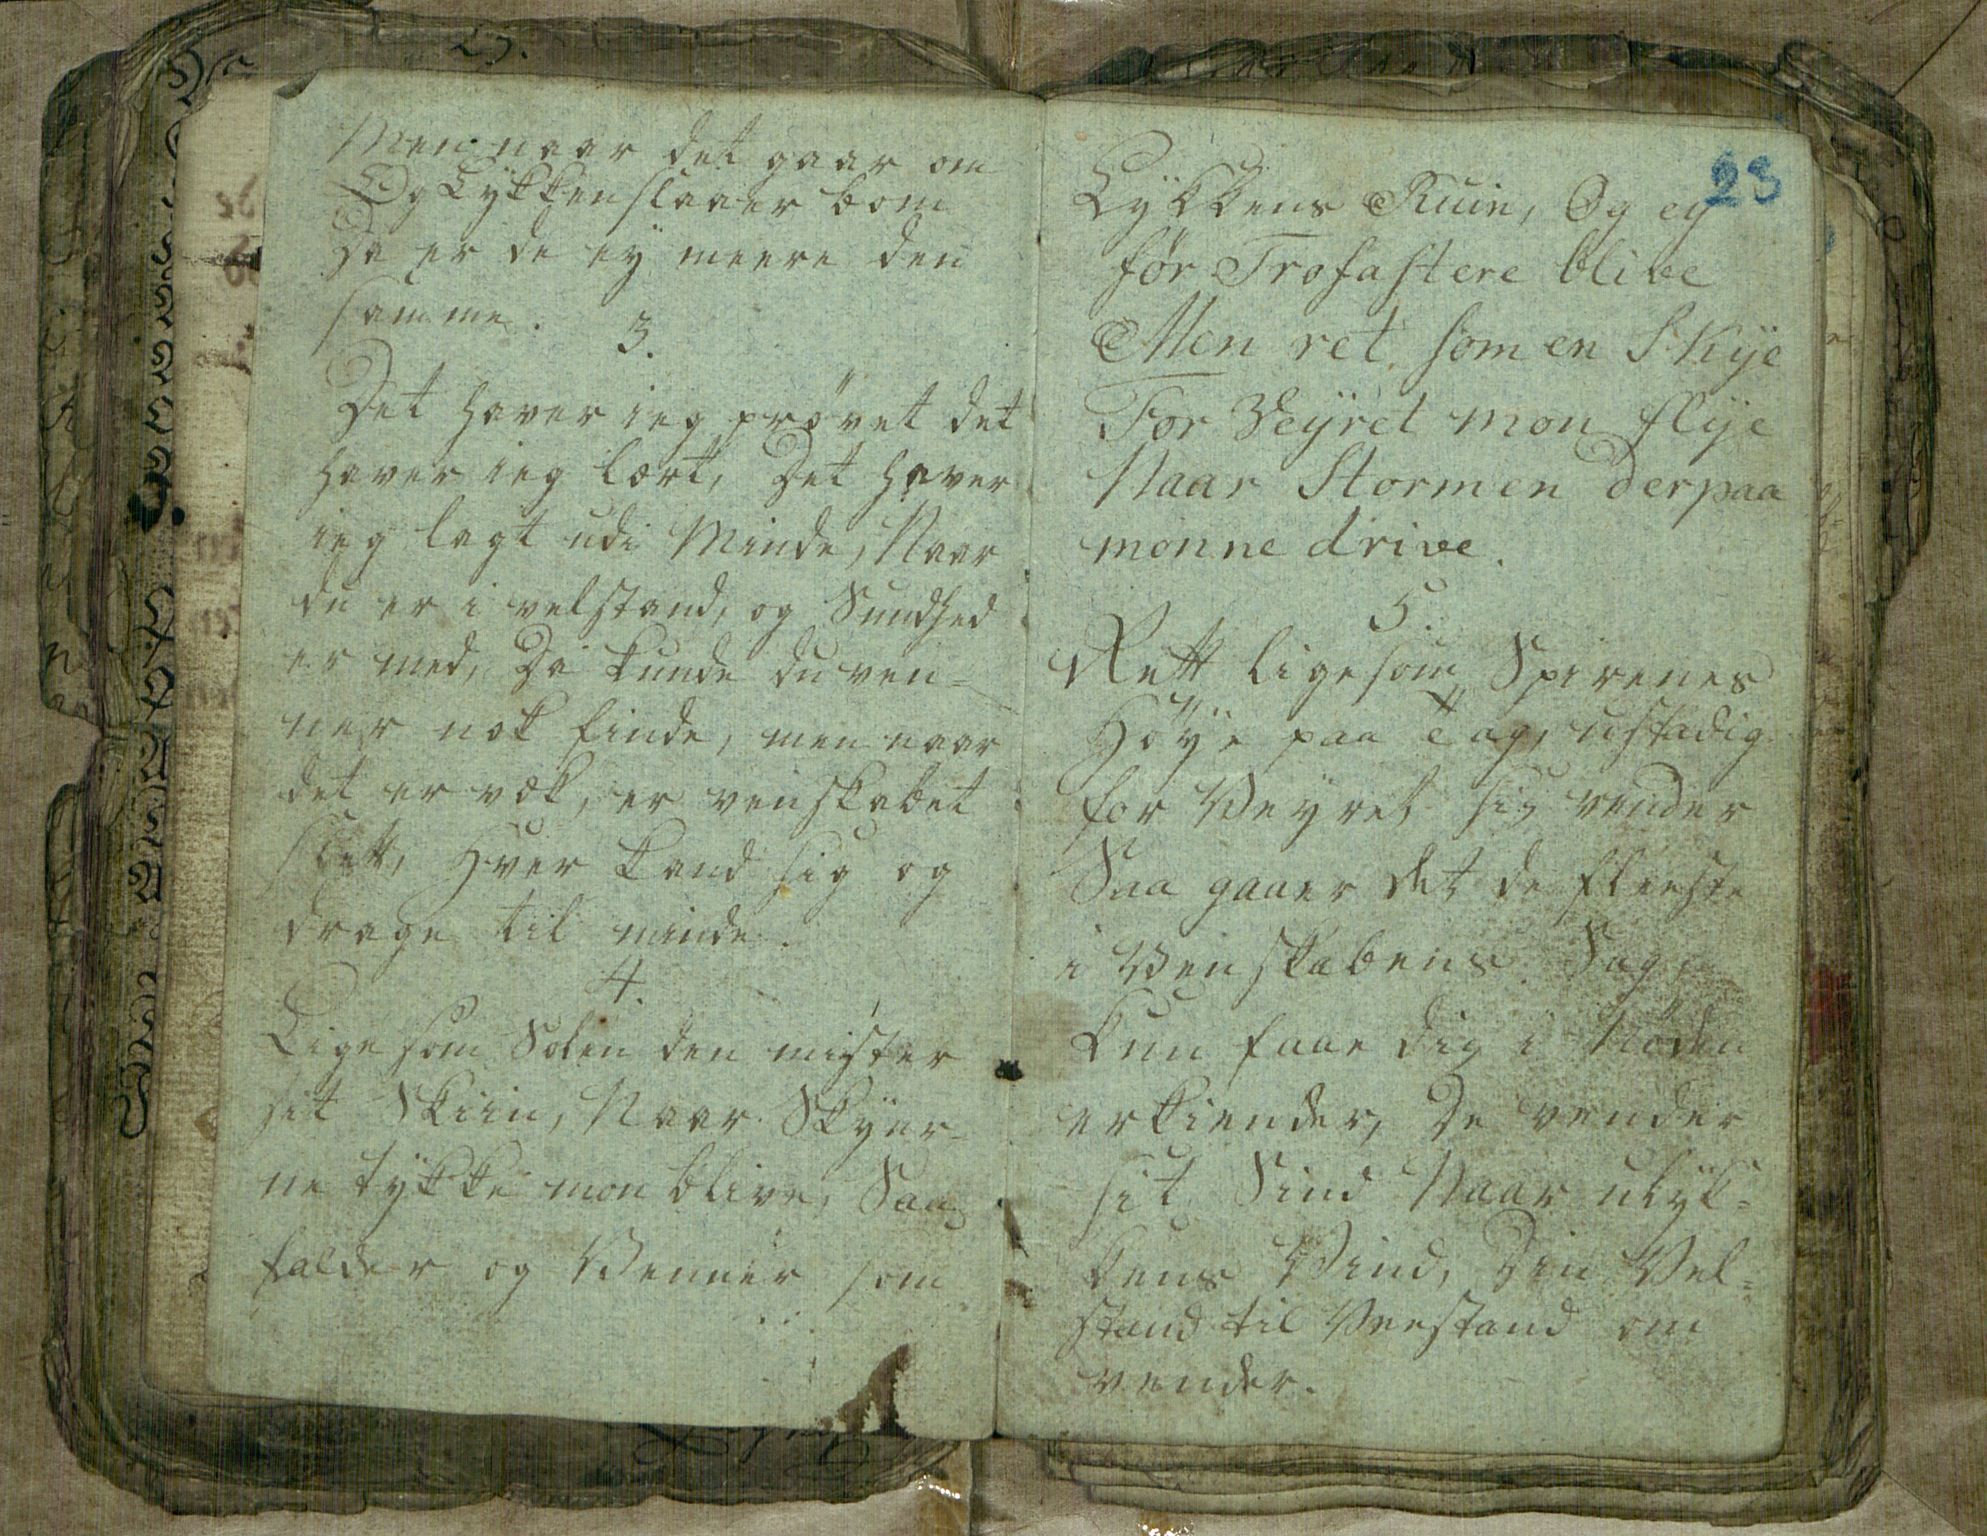 Men naar det gaar om
Og Lykken slaaer bom
Da er de ey meere den
samme.
3.
Det haver ieg prövet det
haver ieg lært, Det haver
ieg lagt udi Minde, Naar
du er i velstand, og Sundhed
er med, Da kunde du ven=
ner nok finde, men naar
det er væk, er venskabet
slett, Hver kand sig og
drage til minde.
4.
Ligesom Solen den mister
sit Skiin, Naar Skÿer=
ne tÿkke mon blive, Saa
falder og Venner som
23
Lÿkkens Ruin, Og ey
før Trofastere blive
Men ret som en Skÿe
For Veÿret mon flÿe
Naar Stormen derpaa
monne drive.
5.
Rett ligesom Spirenes
Höÿe paa Tag, ustadig
for Veyret sig vender
Saa gaaer det de fleeste
i Venskabens Sag,
kun faae dig i Nöden
erkiender, De vender
sit Sind Naar ulÿk=
kens Vind, Din Vel=
stand til Veestand om
vender.